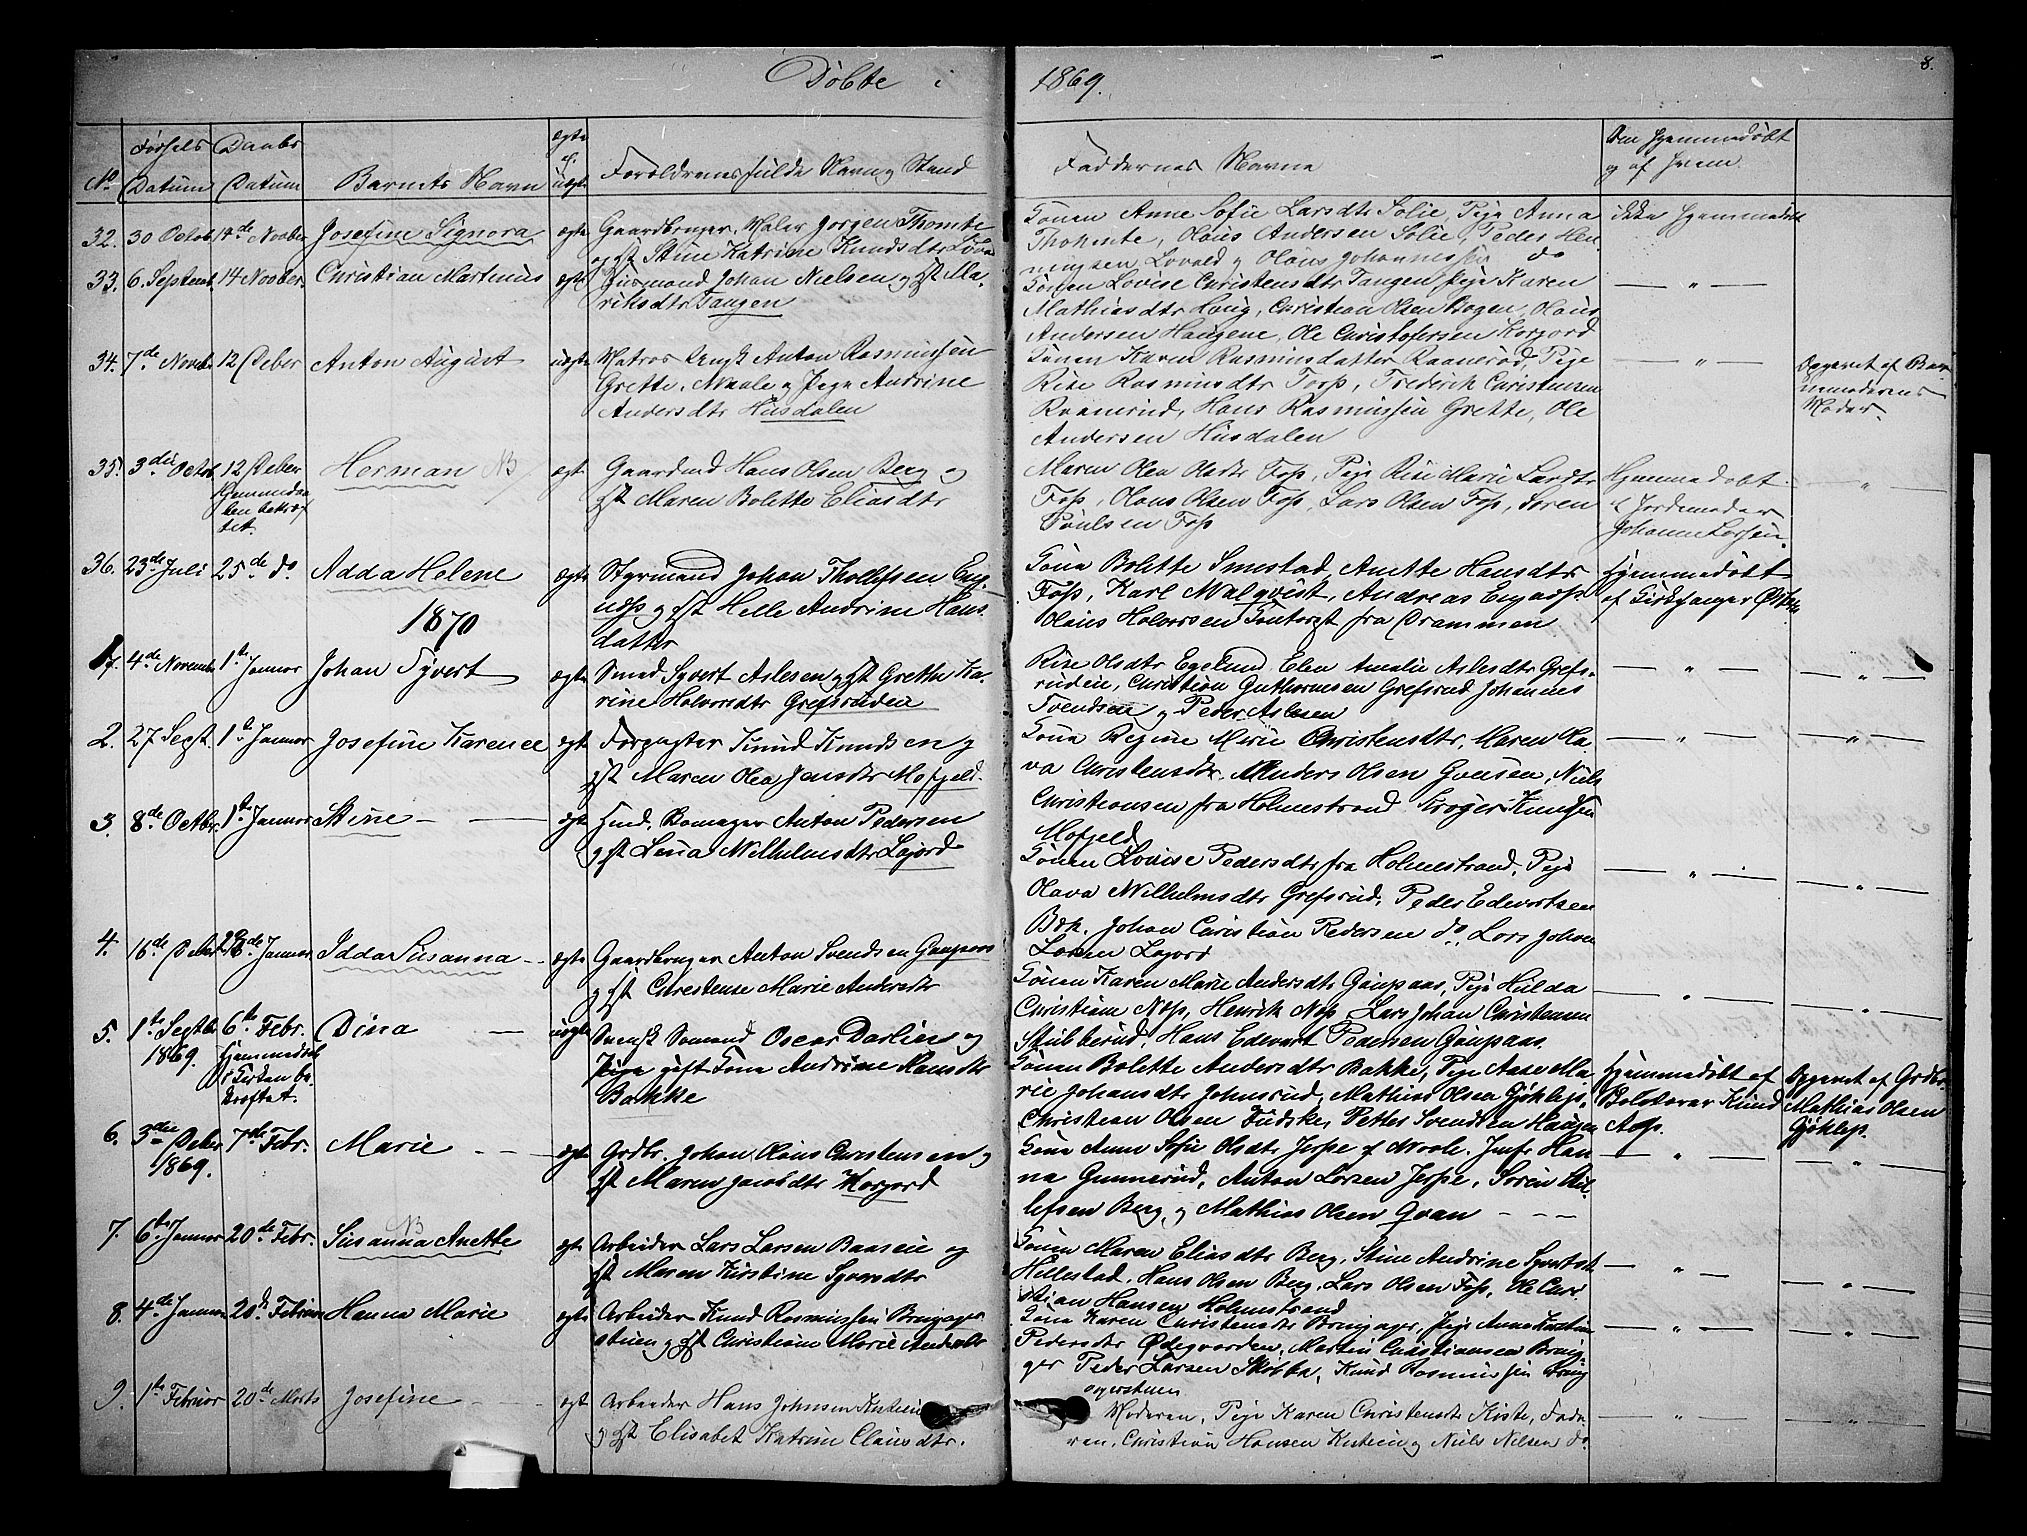 Døbte i 1869.
8.
No
Fødsels Datum
Daabs Datum
Barnets Navn
ægte el. uægte
Forældrenes fulde Navn og Stand
Faddernes Navne
Om Hjemmedøbt og af hvem.
32. 30 Octob 14de Novber Josefine Signora ægte Gaardbruger, Maler Jørgen Thomte
og Hst Stine Katrine Knudsdtr Lova
Konen Anne Sofie Larsdtr Solie, Pige Anna
Thomte, Olaus Andersen Solie, Peder Hen
ningsen Lovald og Olaus Johannessen do
ikke hjemmedøbt
33. 6. Septemb 14 Novber Christian Martinus ægte Husmand Johan Nielsen og Hst Ma-
riksdtr Tangen
Konen Lovise Christensdtr Tangen, Pige Karen
Mathiasdtr Haug, Christian Olsen Bogen, Olaus
Andersen Haugene, Ole Christofersen Korgord
— " —
34. 7de Novemb 12 Deber Anton August uægte Matros Ungk Anton Rasmussen
Grette, Vaale og Pige Andrine
Andersdtr Husdalen
Konen Karen Rasmusdatter Raanerud, Pige
Rise Rasmusdtr Torp, Frederik Christensen
Raanerud, Hans Rasmussen Grette, Ole
Andersen Husdalen
— " —
Opgivet af Bar
nemoderens
Moder.
35. 3die Octob 12 Deber Herman NB ægte Gaardmd Hans Olsen Berg og
Hjemmedaa
ben bekræf
tet.
Hst Maren Bolette Eliasdtr
Maren Olea Olsdtr Fos, Pige Rise Marie Larsdtr
Fos, Olaus Olsen Fos, Lars Olsen Fos, Søren
Poulsen Fos
Hjemmedøbt
af Jordemoder
Johanne Larsen.
— " —
36. 23de Juli 25de do. Adda Helene ægte Styrmand Johan Thollefsen Eng
nøss og Hst Helle Andrine Hans
datter
Kona Bolette Smestad Anette Hansdtr
Foss, Karl Malqvist, Andreas Engnøss
Olaus Halvorsen Kontorist fra Drammen
Hjemmedøbt
af Kirkesanger
1870
1. 4de Novemb 1te Januar Johan Syvert ægte Smed Syvert Aslesen og Hst Grethe Ka-
rine Halvorsdtr Grefsruden
Rise Olsdtr Egelund, Elen Amalie Aslesdtr Grefs-
ruden, Christian Guthormsen Grefsrud Johannes
Svendsen og Peder Aslesen
— " — — " —
2. 27 Sept. 1te Januar Josefine Karence ægt Forpagter Knud Knudsen og
Hst Maren Olea Jensdtr Mofjeld.
Kona Regine Marie Christensdtr, Maren Ha-
va Christensdtr Anders Olsen Gousen, Niels
Christiansen fra Holmestrand Krøger Knudsen
Mofjeld
— " — — " —
3. 8de Octbr. 1te Januar Stine ægte Husd. Bomager Anton Pedersen
og Hst Lena Wilhelmsdtr Lejord
Konen Lovise Pedersdtr fra Holmestrand, Pige
Olava Wilhelmsdtr Grefsrud, Peder Edvartsen
Bdk. Johan Christian Pedersen do, Lars Johan
Larsen Lejord
— " — — " —
4. 16de Deber 26de Januar Idda Susanna ægte Gaardbruger Anton Svendsen Gaupaas
og Hst Christense Marie Andersdtr
Konen Karen Marie Andersdtr Gaupaas, Pige Hulda
Christiane Nøss, Henrik Nøss Lars Johan Christensen
Stubberud, Hans Edevart Pedersen Gaupaas.
— " — — " —
5. 1te Septb 1869. 6te Febr. Dina — uægte Svensk Sømand Oscar Darlin og
Hjemmedaab
i Kirken be-
kræftet.
Pige gift Kona Andrine Hansdtr
Bakke
Konen Bolette Andersdtr Bakke, Pige Aase Ma
rie Johansdtr Johnsrud, Mathias Olsen Gjøkleps,
Christian Olsen Fuske, Petter Svendsen Haugen
Hjemmedøbt af
Knud
Aas.
Opgivet af Grdbr.
Mathias Olsen
Gjøklep.
6. 3die Deber 1869. 7de Febr. Marie ægte Grdbr. Johan Olaus Christensen og
Hst Maren Jacobdtr Korgord
Kona Anne Sofie Olsdtr Jespe af Vaale. Jmfr Han
na Gunnerud, Anton Larsen Jespe, Søren Stil
lefsen Berg, og Mathias Olsen Qvan
— " — — " —
7. 6te Januar 20de Febr. NB Susanna Anette ægte Arbeider Lars Larsen Baaseie og
Hst Maren Kirstine Syversdtr
Konen Maren Eliasdtr Berg, Stine Andrine Syvertsdtr
Hellestad, Hans Olsen Berg, Lars Olsen Fos, Ole Chri
stian Hansen Holmestrand
— " — — " —
8. 4de Januar 20de Februar Hanna Marie ægte Arbeider Knud Rasmussen Bruserager
stuen og Hst Christiane Marie Andersdtr
Kona Karen Christensdtr Bruager, Pige Anne Kirstine
Pedersdtr Ødegaarden, Martin Christiansen Brua
ger Peder Larsen Skibba, Knud Rasmussen Bru
agerstuen
— " — — " —
9. 1te Februar 20de Marts Josefine ægt Arbeider Hans Johnsen
og Hst Elisabet Katrine Clausdtr.
Moderen, Pige Karen Christensdtr Kiste, Fade
ren, Christian Hansen og Niels Nilsen do
— " — — " —